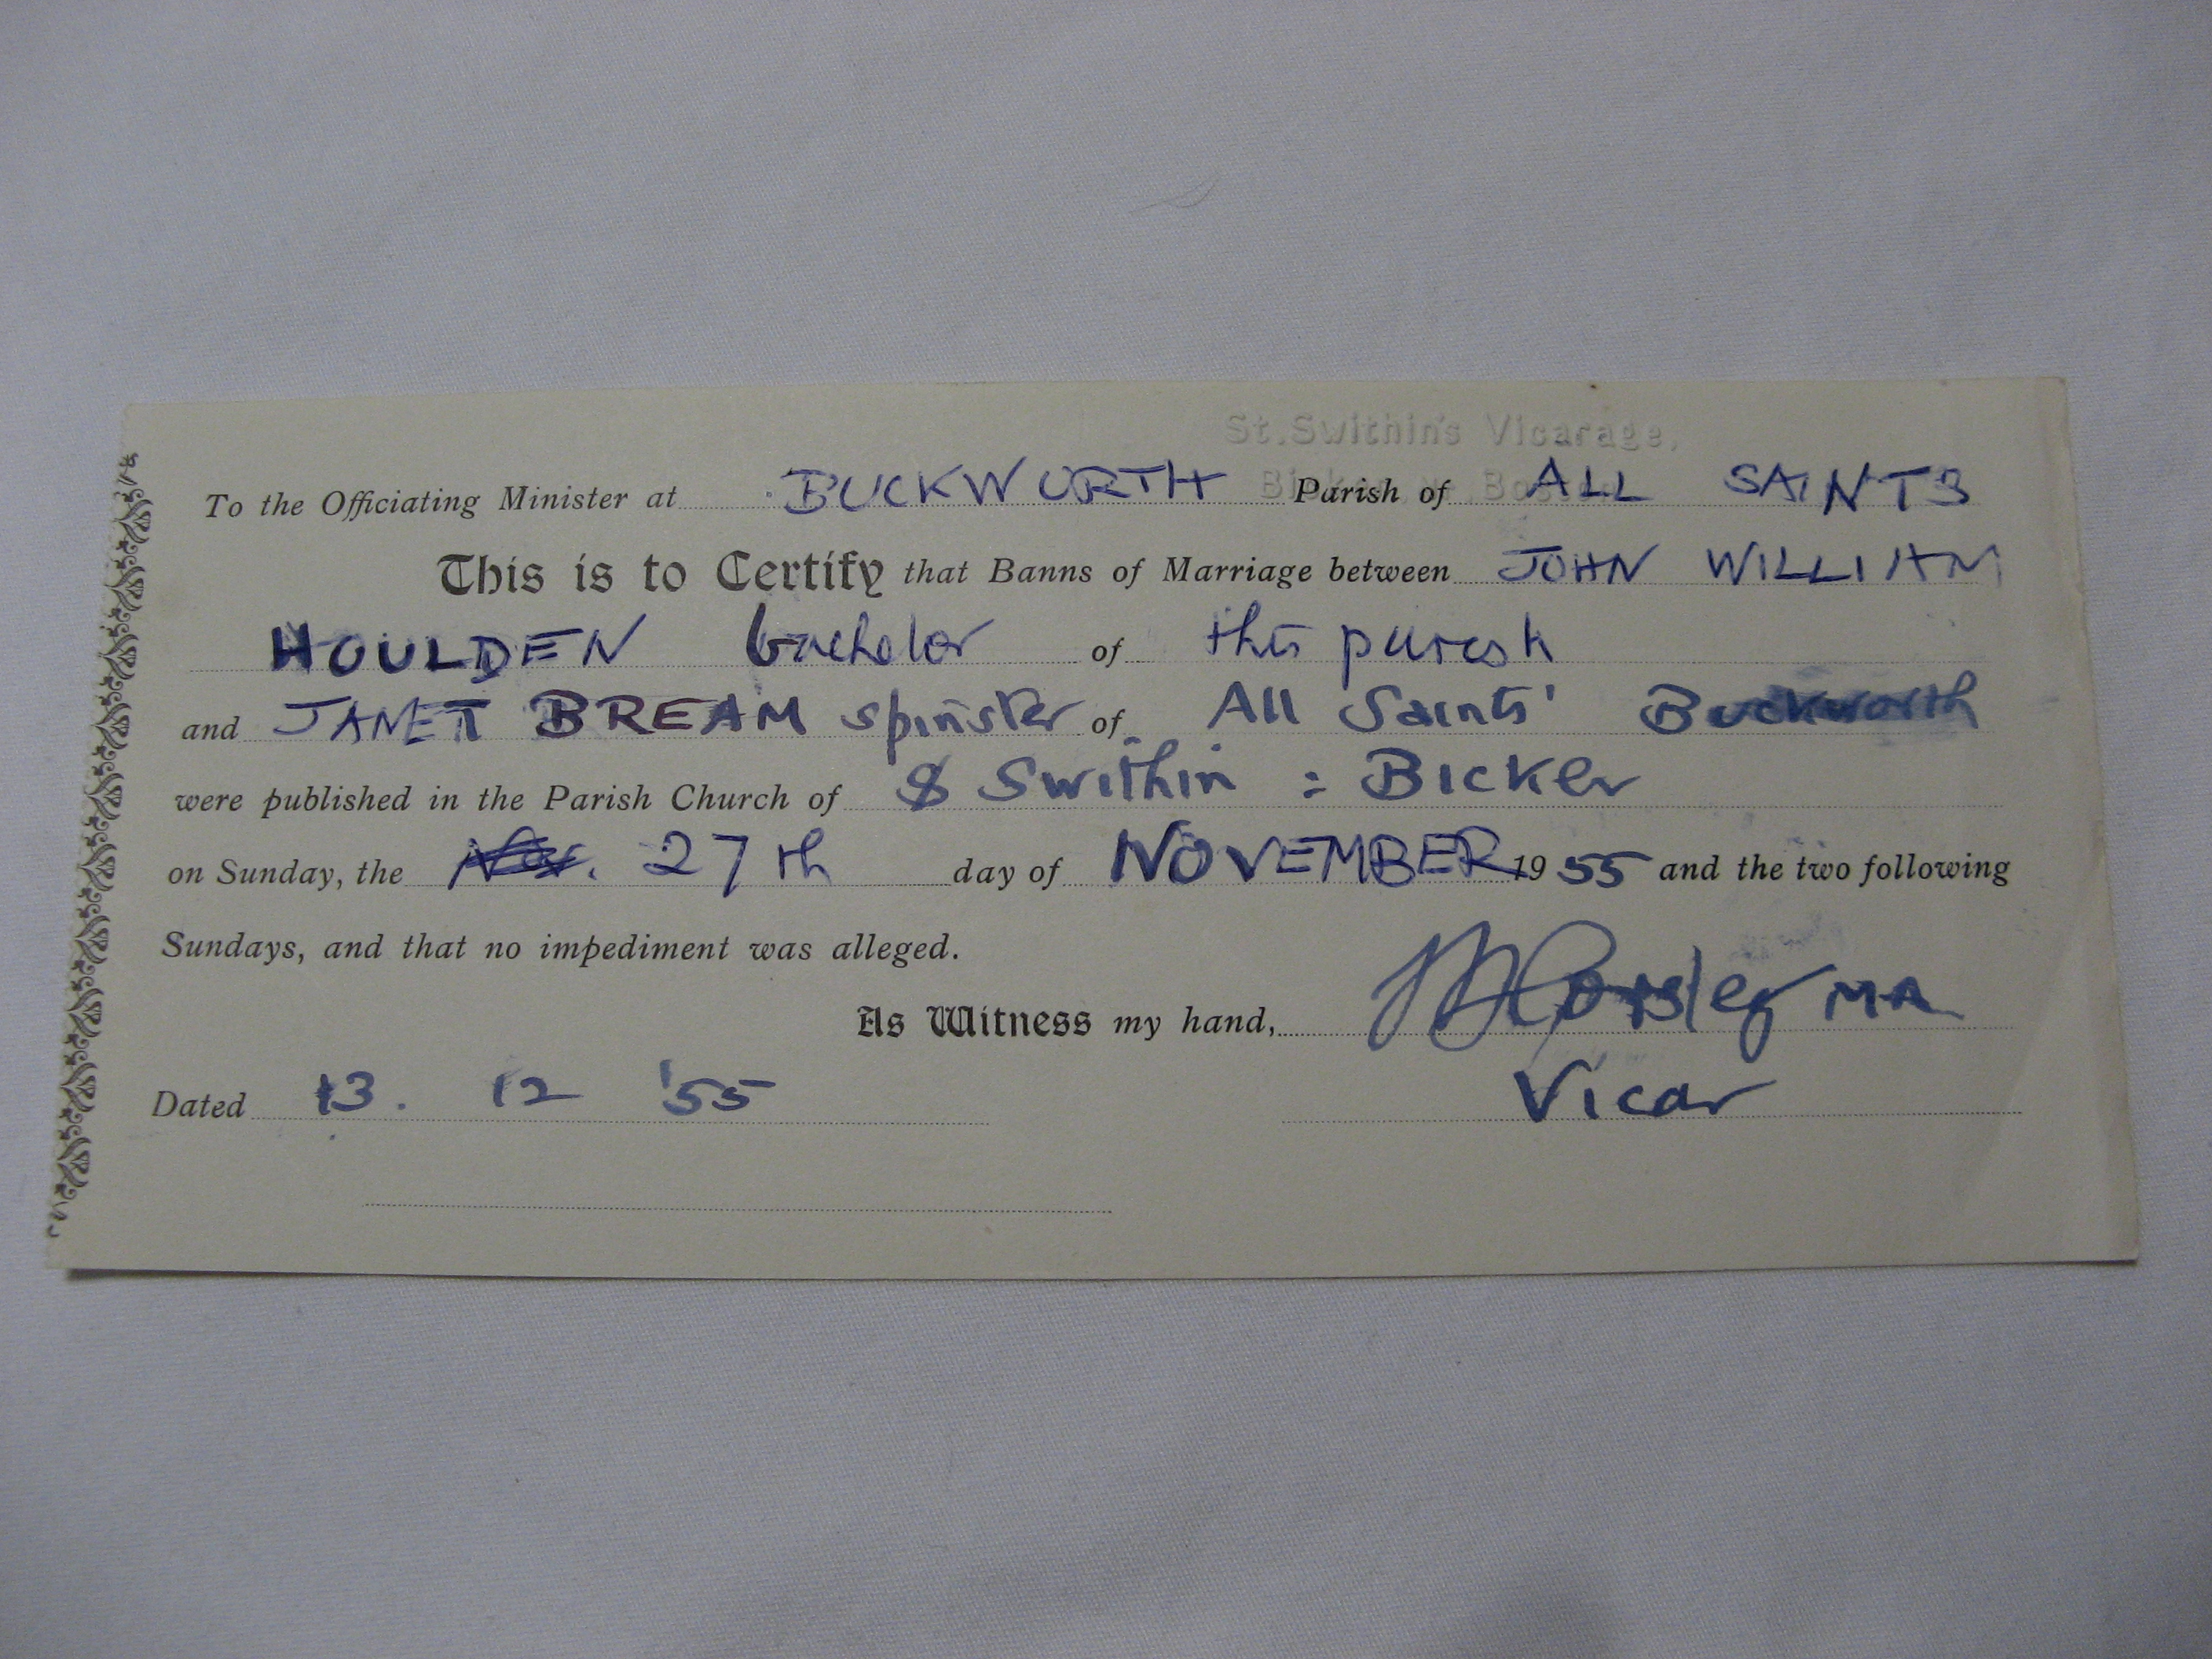 St. Swithin's Vicarage,
To the Officiating Minister at BUCKWORTH Parish of ALL SAINTS
This is to Certify that Banns of Marriage between JOHN WILLIAM
HOULDEN bachelor of this parish
and JANET BREAM spinster of All Saints' Buckworth
were published in the Parish Church of S Swithin : Bicker
on Sunday, the Nov. 27th day of NOVEMBER 1955 and the two following
Sundays, and that no impediment was alleged.
As Witness my hand, MA
Dated 13. 12 '55 Vicar